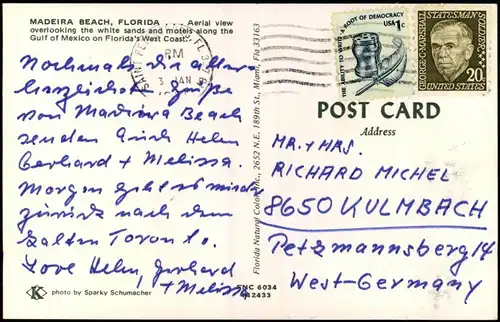 MADEIRA BEACH, FLORIDA . . . Aerial view
overlooking the white sands and motels along the
Gulf of Mexico on Florida's West Coast.
Nochmals die allerherzlichsten Grüße
von Madeira Beach
senden Euch Helen
Gerhard + Melissa.
Morgen geht es wieder
zurück nach dem
kalten Toronto.
Love Helen, Gerhard
+ Melissa
K
photo by Sparky Schumacher
FNC 6034
Florida Natural Color, Inc., 2652 N.E. 189th St., Miami, Fla 33163
SAINT PE
FL
PM
3 JAN
THE ABILITY TO WRITE. A ROOT OF DEMOCRACY
USA 1c
GEORGE C. MARSHALL STATESMAN SOLDIER
20c
UNITED STATES
POST CARD
Address
MR. + MRS.
RICHARD MICHEL
8650 KULMBACH
Petzmannsberg 14
West-Germany